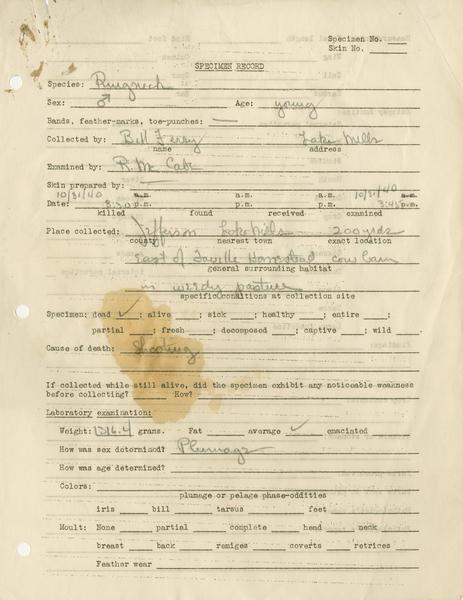 Specimen No. ____
Skin No. ____
SPECIMEN RECORD
Species: Ringneck
Sex: ♂ Age: young
Bands, feather-marks, toe-punches: —
Collected by: Bill Ferry Lake Mills
name address
Examined by: R. Mc Cabe
Skin prepared by:
10/31/40 a.m. a.m. a.m. 10/31/40 a.m.
Date: 3:30 p.m. p.m. p.m. 3:45 p.m.
killed found received examined
Place collected: Jefferson Lake Mills 200 yds
county nearest town exact location
East of Faville Homestead cow barn
general surrounding habitat
in weedy pasture
specific conditions at collection site
Specimen: dead ✓; alive ____; sick ____; healthy ____; entire ____;
partial ____; fresh ____; decomposed ____; captive ____; wild ____.
Cause of death: Shooting
If collected while still alive, did the specimen exhibit any noticeable weakness
before collecting? ____ How?
Laboratory examination:
Weight: 1316.4 grams. Fat ____ average ✓ emaciated
How was sex determined? Plumage
How was age determined?
Colors:
plumage or pelage phase-oddities
iris ____ bill ____ tarsus ____ feet ____
Moult: None ____ partial ____ complete ____ head ____ neck ____
breast ____ back ____ remiges ____ coverts ____ retrices ____
Feather wear